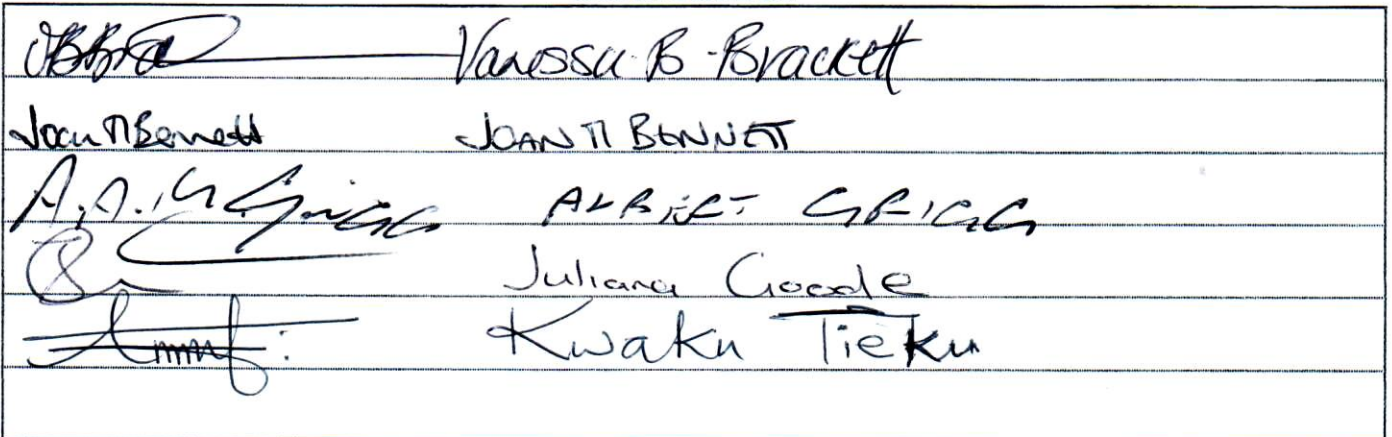 Vanessa B-Brackett
Joan M Bennett JOAN M BENNETT
A.A.G Grigg ALBERT GRIGG
Juliana Goode
Kwaku Tieku